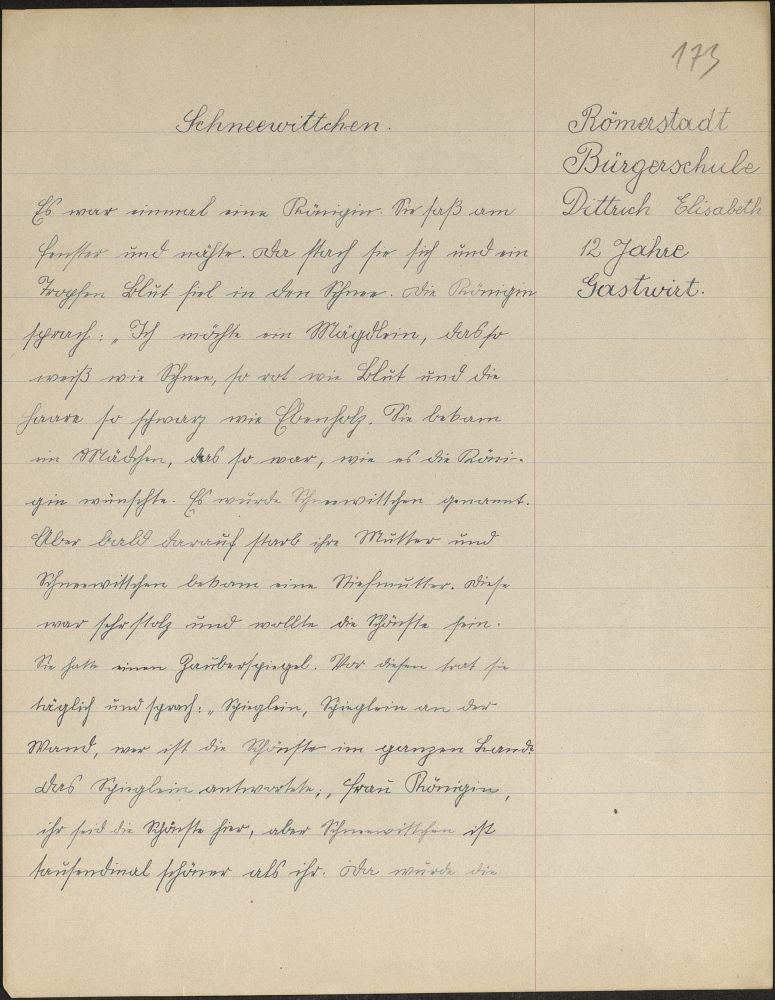 173
Schneewittchen.
Römerstadt
Bürgerschule
Dittrich Elisabeth
12 Jahre
Gastwirt.
Es war einmal eine Königin. Sie saß am
Fenster und nähte. Da stach sie sich und ein
Tropfen Blut fiel in den Schnee. Die Königin
sprach: „Ich möchte ein Mägdlein, das so
weiß wie Schnee, so rot wie Blut und die
Haare so schwarz wie Ebenholz. Sie bekam
ein Mädchen, das so war, wie es die Köni-
gin wünschte. Es wurde Schneewittchen genannt.
Aber bald darauf starb ihre Mutter und
Schneewittchen bekam eine Stiefmutter. Diese
war sehr stolz und wollte die Schönste sein.
Sie hatte einen Zauberspiegel. Vor diesen trat sie
täglich und sprach: „Spieglein, Spieglein an der
Wand, wer ist die Schönste im ganzen Land?
Das Spieglein antwortete: „Frau Königin,
ihr seid die Schönste hier, aber Schneewittchen ist
tausendmal schöner als ihr. Da wurde die